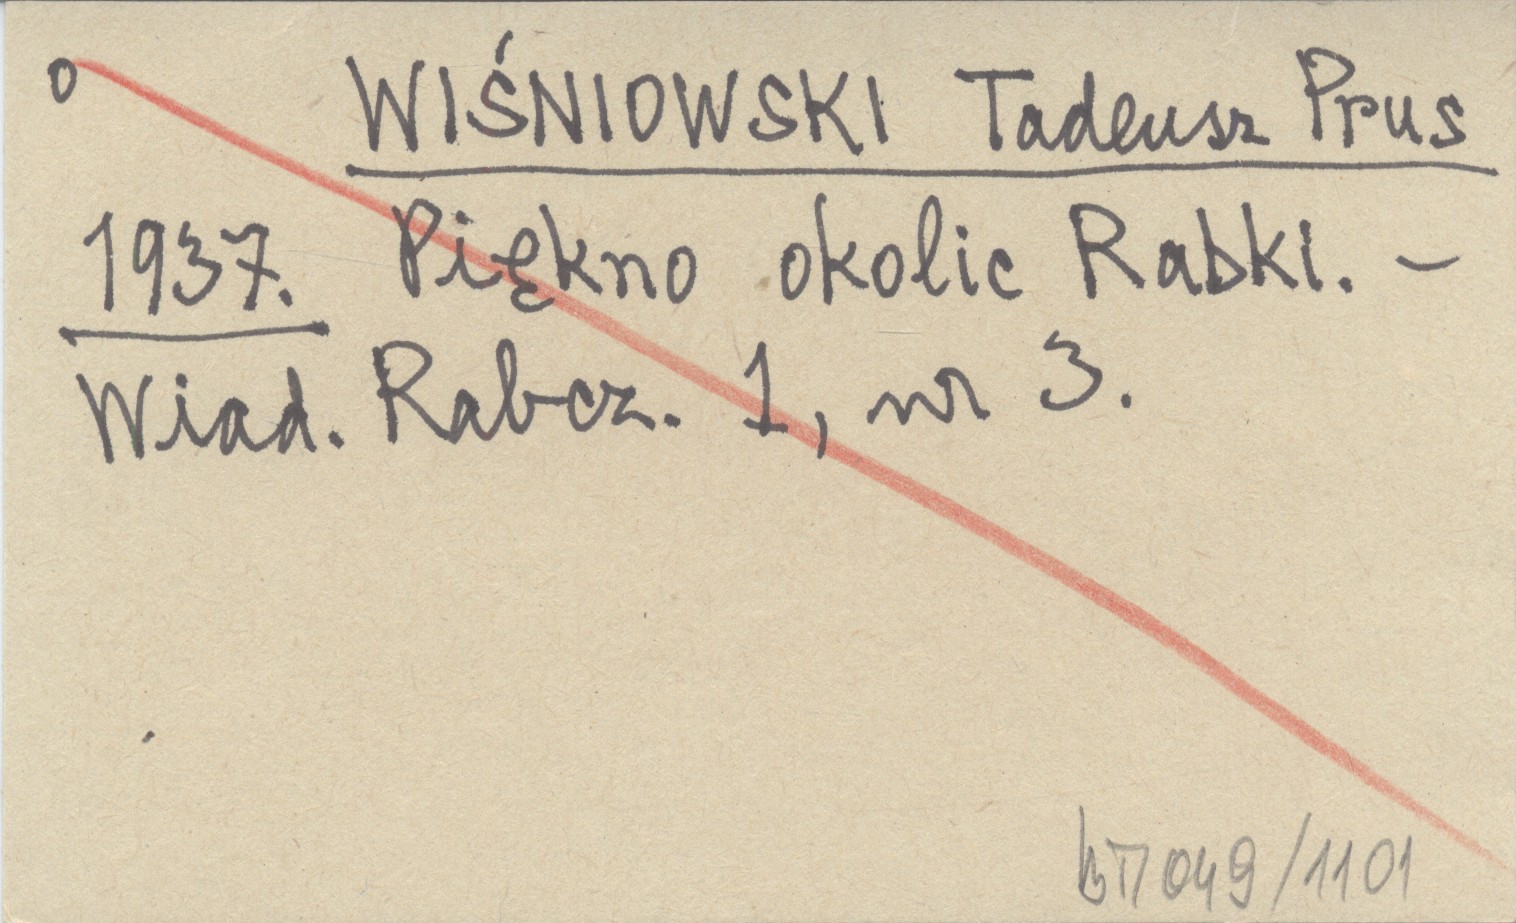 o WIŚNIOWSKI Tadeusz Prus
1937. Piękno okolic Rabki. –
Wiad. Rabcz. 1, nr 3.
049/1101